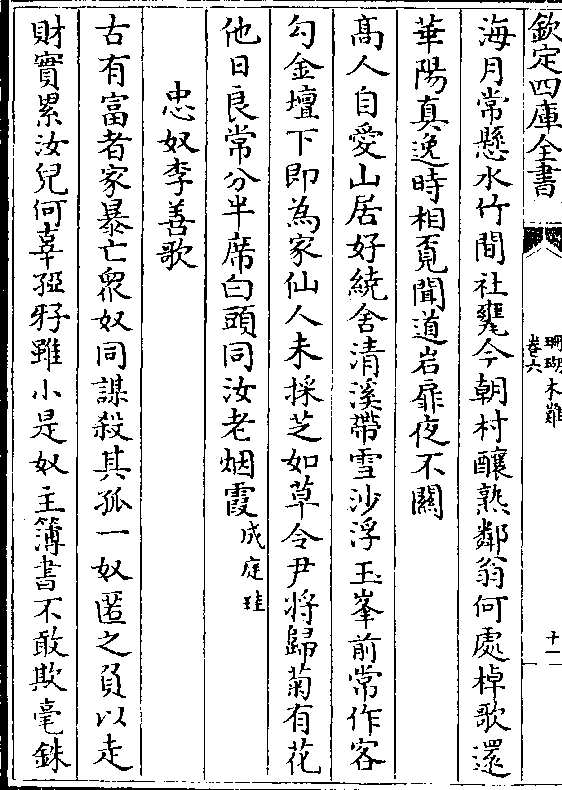 欽定四庫全書
珊瑚木難
卷六
十一
海月常懸水竹間社甕今朝村釀熟鄰翁何處棹歌還
華陽真逸時相覓聞道岩扉夜不關
髙人自愛山居好繞舍清溪帶雪沙浮玉峯前常作客
勾金壇下即為家仙人未採芝如草令尹將歸菊有花
他日良常分半席白頭同汝老烟霞成庭珪
忠奴李善歌
古有富者家暴亡衆奴同謀殺其孤一奴匿之負以走
財實累汝兒何辜孲㸧雖小是奴主簿書不敢欺毫銖